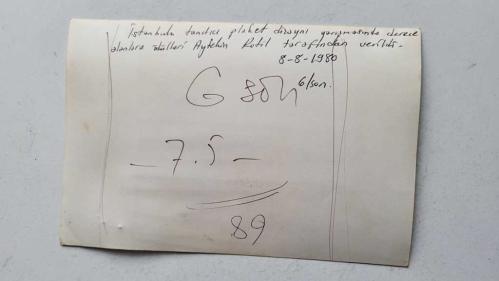 İstanbulu tanıtıcı plaket dizaynı yarışmasında derece
alanlara ödülleri Aytekin Kotil tarafından verildi.
8-8-1980
G son 6/son.
- 7.5 -
89